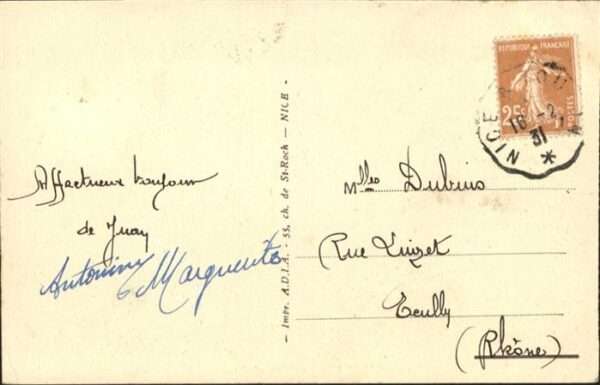 Affectueux bonjour
de Juan
Antonin Marguerite
- Impr. A.D.I.A. - 55, ch. de St-Roch - NICE -
REPUBLIQUE FRANÇAISE
25c
POSTES
NICE
16 -2
31
Mlles Dubuis
Rue Luizet
Ecully
(Rhône)